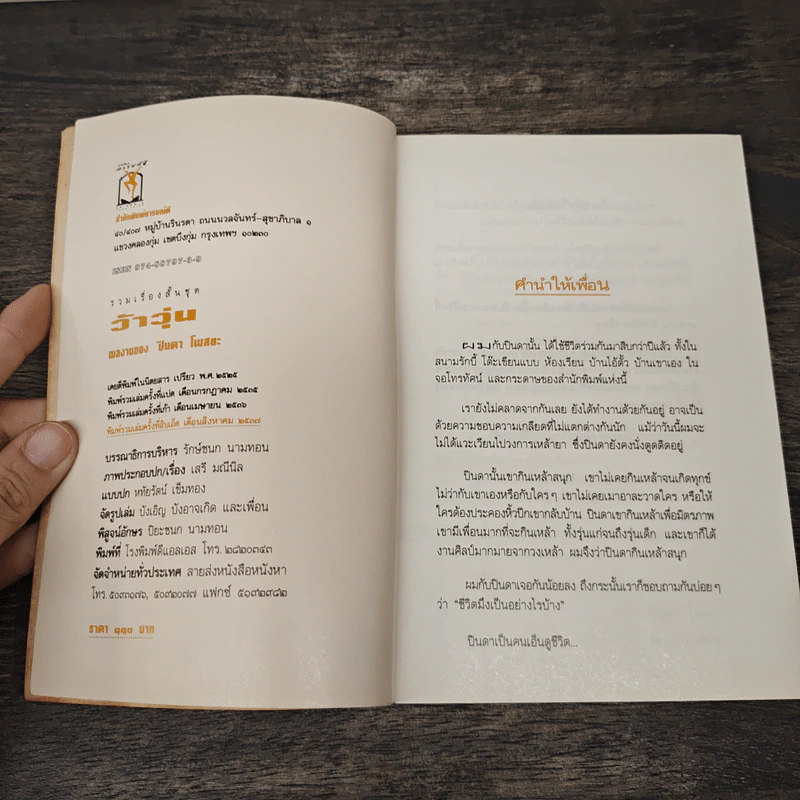 สำนักพิมพ์อารมณ์ดี
๔๐/๔๐๗ หมู่บ้านรินรดา ถนนนวลจันทร์-สุขาภิบาล ๑
แขวงคลองกุ่ม เขตบึงกุ่ม กรุงเทพฯ ๑๐๒๓๐
ISBN 974-88797-3-9
รวมเรื่องสั้นชุด
ว้าวุ่น
ผลงานของ ปินดา โพสยะ
เคยตีพิมพ์ในนิตยสาร เปรียว พ.ศ.๒๕๒๕
พิมพ์รวมเล่มครั้งที่แปด เดือนกรกฎาคม ๒๕๓๕
พิมพ์รวมเล่มครั้งที่เก้า เดือนเมษายน ๒๕๓๖
พิมพ์รวมเล่มครั้งที่สิบเอ็ด เดือนสิงหาคม ๒๕๓๗
บรรณาธิการบริหาร รักษ์ชนก นามทอน
ภาพประกอบปก/เรื่อง เสรี มณีนิล
แบบปก หทัยรัตน์ เข็มทอง
จัดรูปเล่ม บังเอิญ บังอาจเกิด และเพื่อน
พิสูจน์อักษร ปิยะชนก นามทอน
พิมพ์ที่ โรงพิมพ์ดีแอลเอส โทร. ๒๘๒๐๓๔๓
จัดจำหน่ายทั่วประเทศ สายส่งหนังสือหนังหา
โทร. ๕๐๙๓๑๗๖, ๕๐๙๒๐๗๗ แฟกซ์ ๕๑๙๒๙๘๒
ราคา ๑๑๐ บาท
คำนำให้เพื่อน
ผมกับปินดานั้น ได้ใช้ชีวิตร่วมกันมาสิบกว่าปีแล้ว ทั้งใน
สนามรักบี้ โต๊ะเขียนแบบ ห้องเรียน บ้านไอ้ตั้ว บ้านเขาเอง ใน
จอโทรทัศน์ และกระดาษของสำนักพิมพ์แห่งนี้
เรายังไม่คลาดจากกันเลย ยังได้ทำงานด้วยกันอยู่ อาจเป็น
ด้วยความชอบความเกลียดที่ไม่แตกต่างกันนัก แม้ว่าวันนี้ผมจะ
ไม่ได้แวะเวียนไปวงการเหล้ายา ซึ่งปินดายังคงนั่งตูดติดอยู่
ปินดานั้นเขากินเหล้าสนุก เขาไม่เคยกินเหล้าจนเกิดทุกข์
ไม่ว่ากับเขาเองหรือกับใครๆ เขาไม่เคยเมาอาละวาดใคร หรือให้
ใครต้องประคองหิ้วปีกเขากลับบ้าน ปินดาเขากินเหล้าเพื่อมิตรภาพ
เขามีเพื่อนมากที่จะกินเหล้า ทั้งรุ่นแก่จนถึงรุ่นเด็ก และเขาก็ได้
งานศิลป์มากมายจากวงเหล้า ผมจึงว่าปินดากินเหล้าสนุก
ผมกับปินดาเจอกันน้อยลง ถึงกระนั้นเราก็ชอบถามกันบ่อยๆ
ว่า "ชีวิตมึงเป็นอย่างไรบ้าง"
ปินดาเป็นคนเอ็นดูชีวิต...